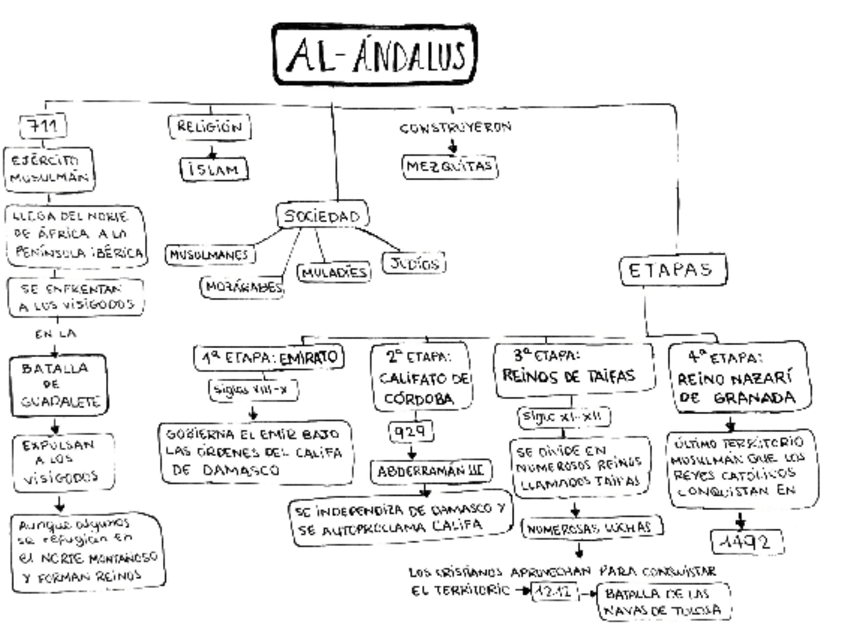 AL-ÁNDALUS
711
EJÉRCITO
MUSULMÁN
LLEGA DEL NORTE
DE ÁFRICA A LA
PENÍNSULA IBÉRICA
SE ENFRENTAN
A LOS VISIGODOS
EN LA
BATALLA
DE
GUADALETE
EXPULSAN
A LOS
VISIGODOS
Aunque algunos
se refugian en
el NORTE MONTAÑOSO
Y FORMAN REINOS
RELIGIÓN
ISLAM
SOCIEDAD
MUSULMANES
MOZÁRABES
MULADÍES
JUDÍOS
CONSTRUYERON
MEZQUITAS
ETAPAS
1ª ETAPA: EMIRATO
siglos VIII-X
GOBIERNA EL EMIR BAJO
LAS ÓRDENES DEL CALIFA
DE DAMASCO
2ª ETAPA:
CALIFATO DE
CÓRDOBA
929
ABDERRAMÁN III
SE INDEPENDIZA DE DAMASCO Y
SE AUTOPROCLAMA CALIFA
3ª ETAPA:
REINOS DE TAIFAS
siglo XI-XII
SE DIVIDE EN
NUMEROSOS REINOS
LLAMADOS TAIFAS
NUMEROSAS LUCHAS
LOS CRISTIANOS APROVECHAN PARA CONQUISTAR
EL TERRITORIO → 1212 → BATALLA DE LAS
NAVAS DE TOLOSA
4ª ETAPA:
REINO NAZARÍ
DE GRANADA
ÚLTIMO TERRITORIO
MUSULMÁN QUE LOS
REYES CATÓLICOS
CONQUISTAN EN
1492